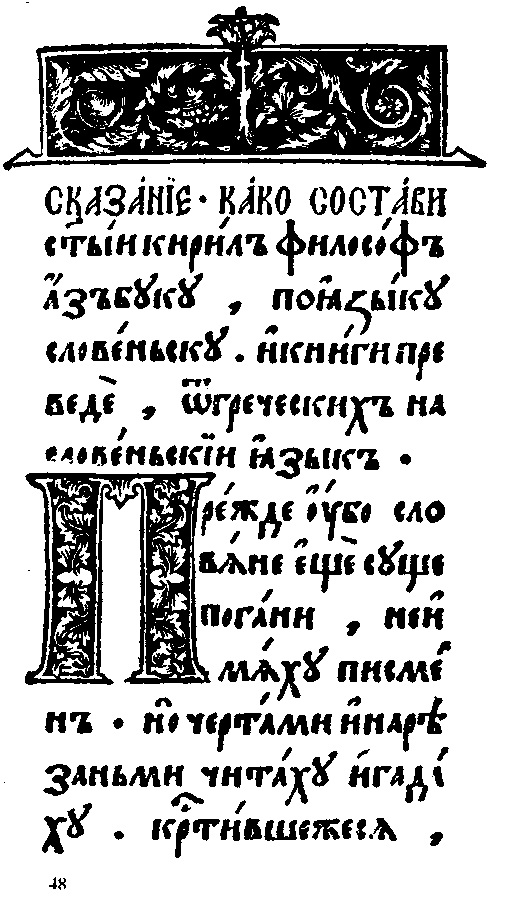 СКАЗА́НЇЕ · КА́КО СОСТА́ВИ
ст҃ы́и кири́лъ филосо́фъ
а҆́зъбꙋкꙋ , поꙗ҆зы́кꙋ
слове́ньскꙋ . и҆кни́ги пре
ведѐ , ѿгреческихъ на
слове́ньскїи ꙗ҆зыкъ .
Пре́жде ᲂу҆́бо сло
вѧ́не є҆щѐ сꙋще
пога́ни , неи҆
мѧ́хꙋ писме҆
нъ . но҆ черта́ми и҆нарѣ́
заньми чита́хꙋ и҆гада́
хꙋ . кр҇ти́вшежесѧ ,
48